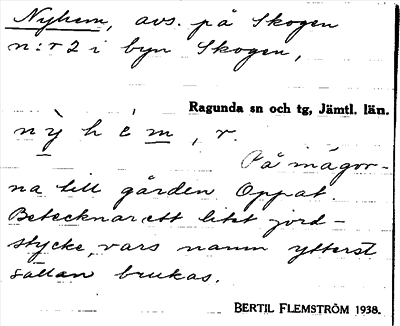 Nyhem, avs. på Skogen
n:r 2 i byn Skogen,
Ragunda sn och tg, Jämtl. län.
nỳhém, r.
På mägor-
na till gården Oppat.
Betecknar ett litet jord-
stycke, vars namn ytterst
sällan brukas.
BERTIL FLEMSTRÖM 1938.